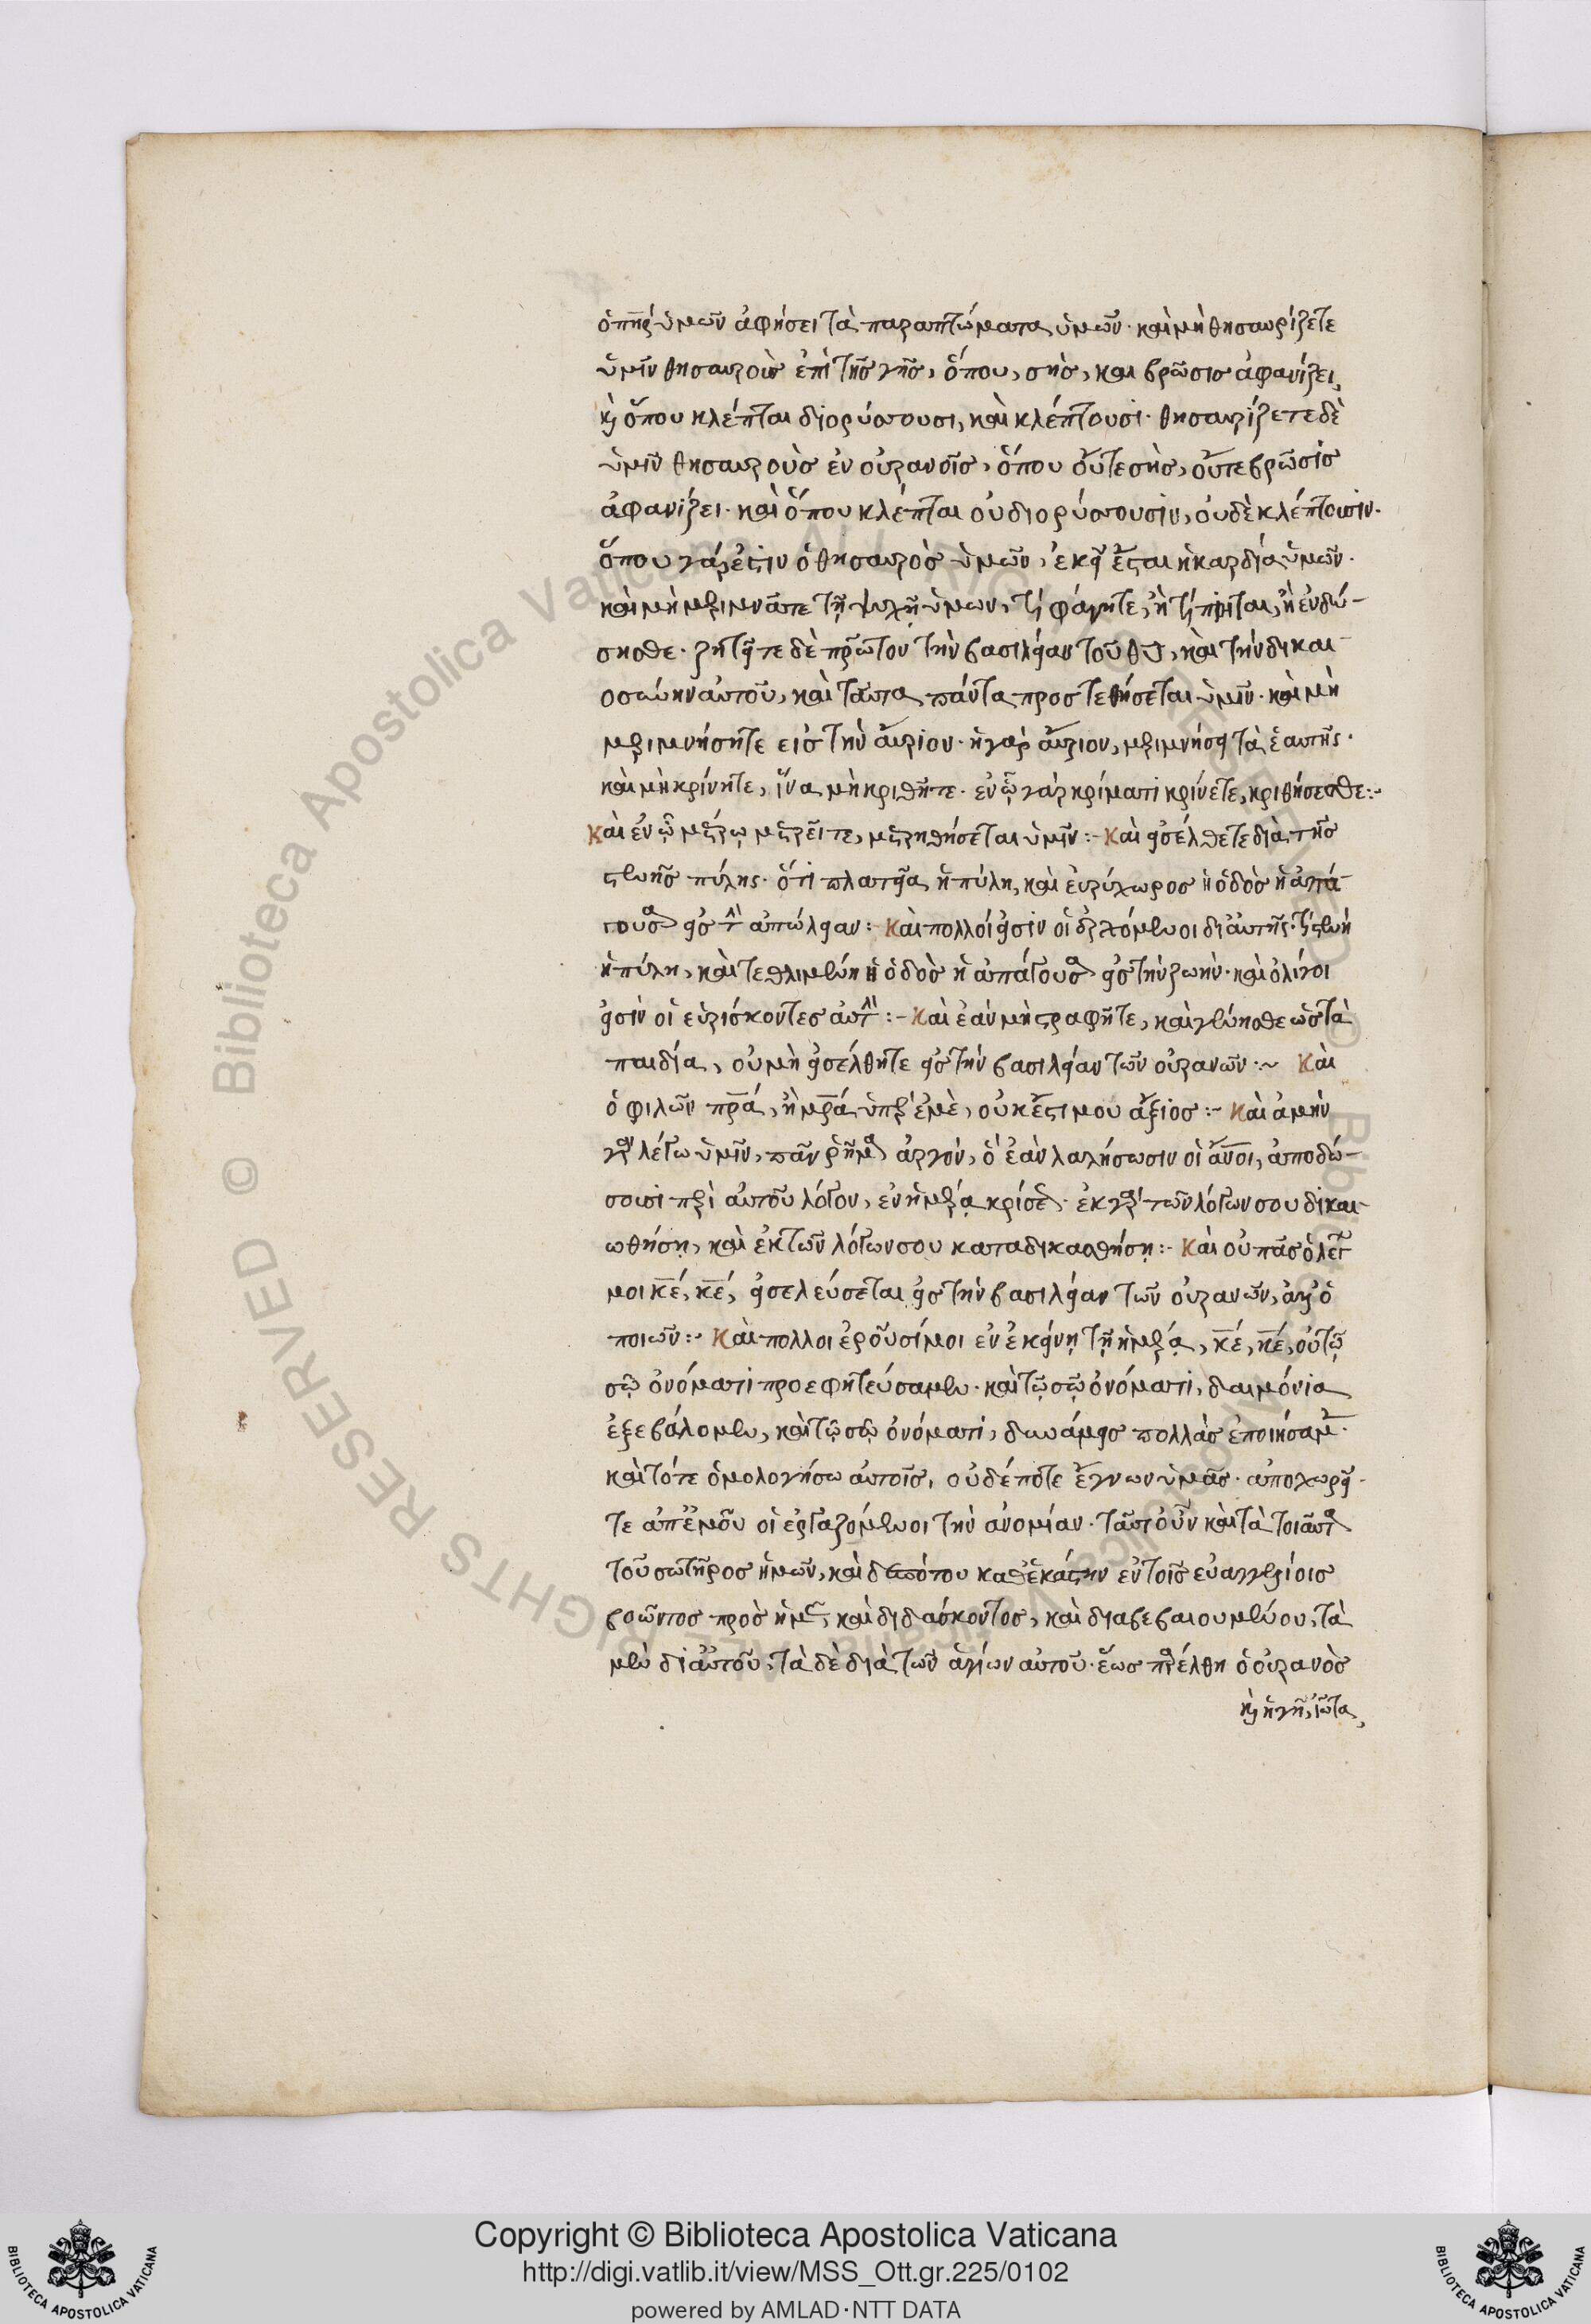 ὁ π̅η̅ρ̅ ὑμῶν ἀφήσει τὰ παραπτώματα ὑμῶν· καὶ μὴ θησαυρίζετε
ὑμῖν θησαυροὺς ἐπὶ τῆς γῆς, ὅπου, σὴς, καὶ βρῶσις ἀφανίζει,
κỳ ὅπου κλέπται διορύσσουσι, καὶ κλέπτουσι· θησαυρίζετε δὲ
ὑμῖν θησαυροὺς ἐν οὐρανοῖς, ὅπου οὔτε σὴς, οὔτε βρῶσις
ἀφανίζει· καὶ ὅπου κλέπται οὐ διορύσσουσιν, οὐδὲ κλέπτουσιν·
ὅπου γάρ ἐστιν ὁ θησαυρὸς ὑμῶν, ἐκεῖ ἔσται ἡ καρδία ὑμῶν·
καὶ μὴ μεριμνᾶτε τῇ ψυχῇ ὑμων, τί φάγητε, ἢ τί πίηται, ἢ ἐνδύ-
σησθε· ζητεῖτε δὲ πρῶτον τὴν βασιλείαν τοῦ θυ, καὶ τὴν δικαι-
οσύνην αὐτοῦ, καὶ ταῦτα πάντα προστεθήσεται ὑμῖν· καὶ μὴ
μεριμνήσητε εἰς τὴν αὔριον· ἡ γαρ αὔριον, μεριμνήσει τὰ ἑαυτῆς·
καὶ μὴ κρίνητε, ἵνα μὴ κριθῆτε· ἐν ᾧ γὰρ κρίματι κρίνετε, κριθήσεσθε:-
Καὶ ἐν ᾧ μέτρῳ μετρεῖτε, μετρηθήσεται ὑμῖν:- Καὶ εἰσέλθετε διὰ τῆς
στενῆς πύλης· ὅτι πλατεῖα ἡ πύλη, καὶ εὐρύχωρος ἡ ὁδὸς ἡ ἀπά-
γουσα εἰς τὴν ἀπώλειαν:- Καὶ πολλοί εἰσιν οἱ ἐρχόμενοι δι αὐτῆς· τί στενή
ἡ πύλη, καὶ τεθλιμένη ἡ ὁδὸς ἡ ἀπάγουσα εἰς τὴν ζωήν· καὶ ὀλίγοι
εἰσίν οἱ εὑρίσκοντες αὐτήν:- Καὶ ἐὰν μὴ στραφῆτε, καὶ γένησθε ὡς τὰ
παιδία, οὐ μὴ εἰσέλθητε εἰς τὴν βασιλείαν τῶν οὐρανῶν:~ Καὶ
ὁ φιλῶν π̅ρ̅α̅, ἢ μ̅ρ̅α̅ ὑπὲρ ἐμὲ, οὐκ ἔστι μου ἄξιος:- Καὶ ἀμὴν
γὰρ λέγω ὑμῖν, πᾶν ῥῆμα ἀργόν, ὃ ἐὰν λαλήσωσιν οἱ α̅ν̅ο̅ι̅, ἀποδώ-
σουσι περὶ αὐτοῦ λόγον, ἐν ἡμέρᾳ κρίσεως· ἐκ γὰρ τῶν λόγων σου δικαι-
ωθήσῃ, καὶ ἐκ τῶν λόγων σου καταδικασθήσῃ:- Καὶ οὐ πᾶς ὁ λέγων
μοι κ̅ε̅, κ̅ε̅, εἰσελεύσεται εἰς τὴν βασιλείαν τῶν οὐρανῶν, ἀλλ' ὁ
ποιῶν:- Καὶ πολλοι ἐροῦσί μοι ἐν ἐκείνῃ τῇ ἡμέρᾳ, κ̅ε̅, κ̅ε̅, οὐ τῷ
σῷ ὀνόματι προεφητεύσαμεν· καὶ τῷ σῷ ὀνόματι, δαιμόνια
ἐξεβάλομεν, καὶ τῷ σῷ ὀνόματι, δυνάμεις πολλὰς ἐποιήσαμεν·
καὶ τότε ὁμολογήσω αὐτοῖς, οὐδέποτε ἔγνων ὑμᾶς· ἀποχωρεῖ-
τε ἀπ' ἐμοῦ οἱ ἐργαζόμενοι τὴν ἀνομίαν· ταῦτ οὖν καὶ τὰ τοιαῦτα
τοῦ σωτῆρος ἡμῶν, καὶ δεσπότου καθ ἑκάστην ἐν τοῖς εὐαγγελίοις
βοῶντος πρὸς ἡμᾶς, καὶ διδάσκοντος, καὶ διαβεβαιουμένου, τὰ
μὲν δι αὐτοῦ, τὰ δὲ διὰ τῶν ἁγίων αὐτοῦ· ἕως παρέλθη ὁ οὐρανὸς
κỳ ἡ γῆ, ἰῶτα,
Copyright © Biblioteca Apostolica Vaticana
http://digi.vatlib.it/view/MSS_Ott.gr.225/0102
powered by AMLAD·NTT DATA